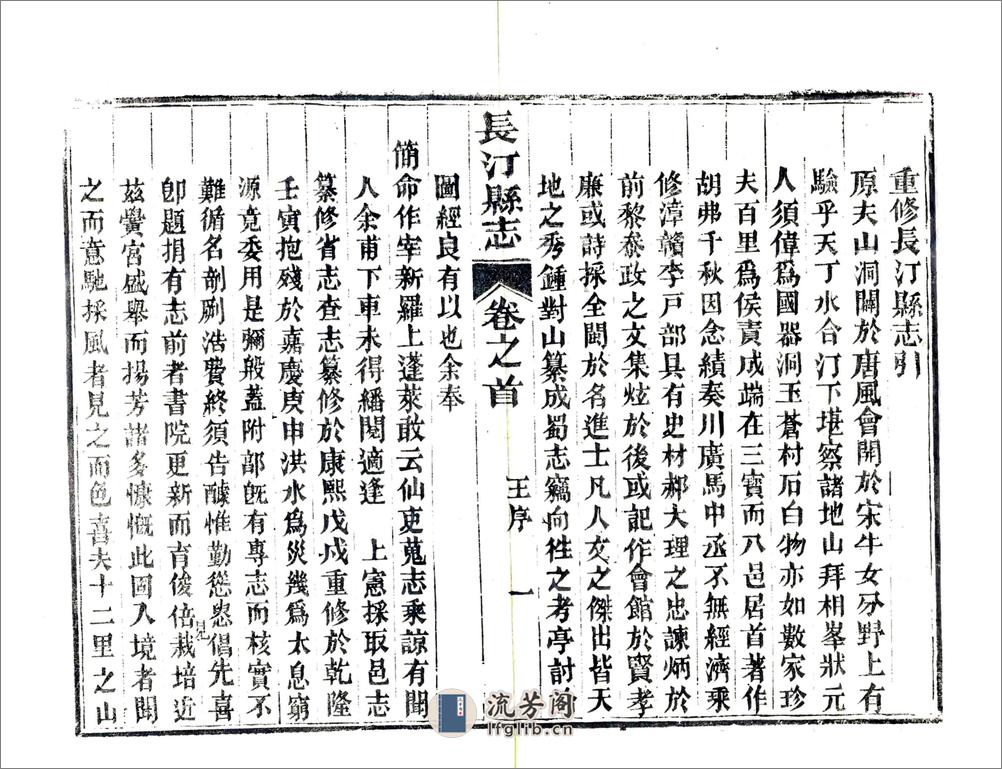 重修長汀縣志引
原夫山洞闢於唐風會開於宋牛女分野上有
驗乎天丁水合汀下堪察諸地山拜相峯狀元
人須偉爲國器洞玉蒼村石白物亦如數家珍
夫百里爲侯責成端在三寳而八邑居首著作
胡弗千秋因念績奏川廣馬中丞不無經濟乘
修漳贛李戸部具有史材郝大理之忠諫炳於
前黎泰政之文集炫於後或記作會館於賢孝
廉或詩採全閩於名進士凡人文之傑出皆天
地之秀鍾對山纂成蜀志竊向徃之考亭討
長汀縣志 卷之首 王序 一
圖經良有以也余奉
簡命作宰新羅上蓬萊敢云仙吏蒐志乘諒有聞
人余甫下車未得繙閱適逢 上憲採取邑志
纂修省志查志纂修於康熙戊戌重修於乾隆
壬寅抱殘於嘉慶庚申洪水爲災幾爲太息窮
源竟委用是彌殷蓋附部旣有專志而核實不
難循名剞劂浩費終須告醵惟勤慫恿倡先喜
見
卽題捐有志前者書院更新而育俊倍栽培近
茲黌宮盛舉而揚芳諸多慷慨此固入境者聞
之而意馳採風者見之而色喜夫十二里之山
流芳阁
lfglib.cn